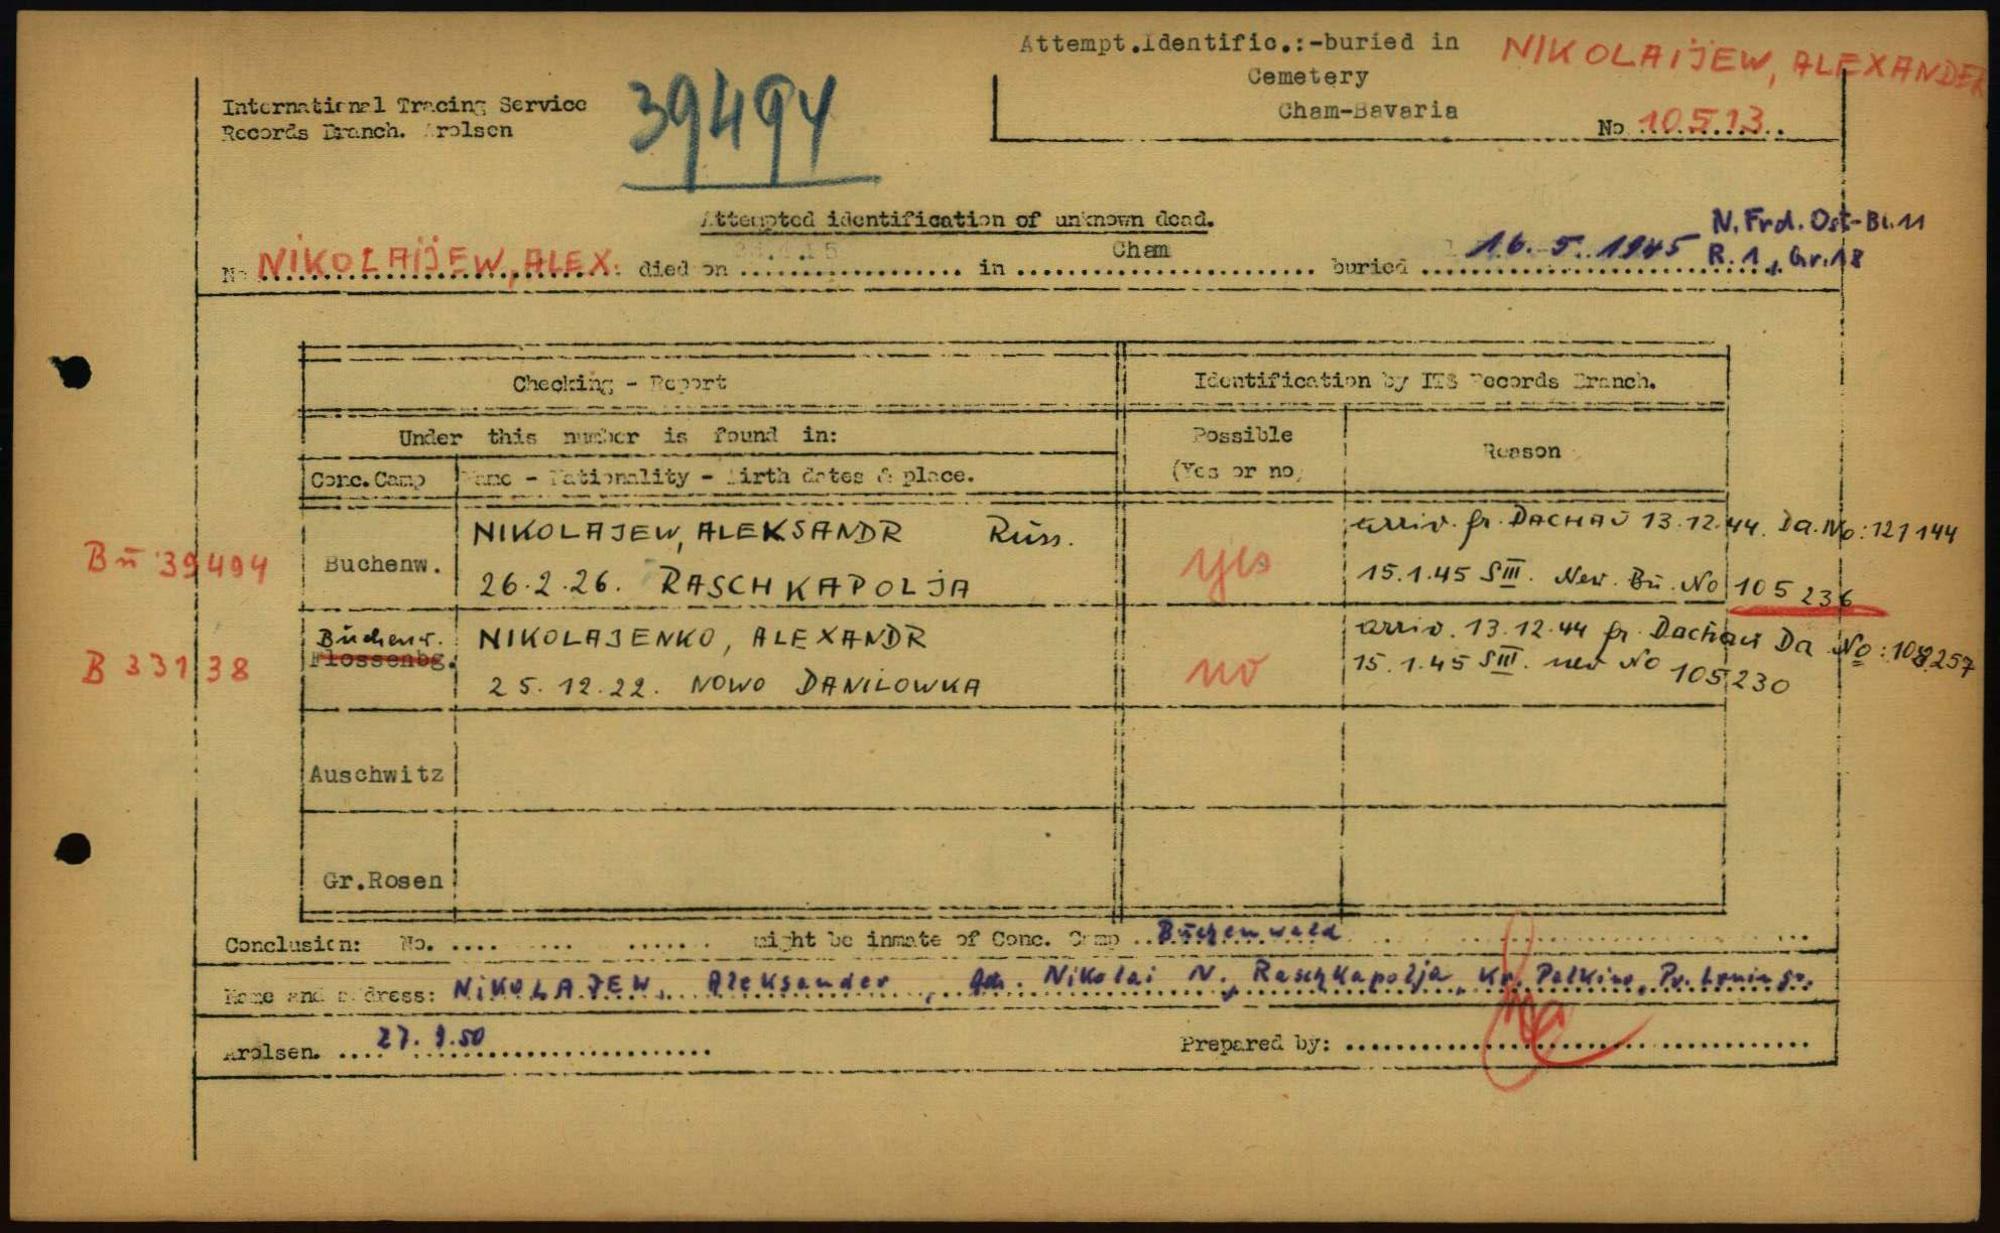 Attempt.Identific.:-buried in
Cemetery
Cham-Bavaria
NIKOLAIJEW, ALEXANDER
No 10513
International Tracing Service
Records Branch. Arolsen
39494
Attempted identification of unknown dead.
N. Frd. Ost-Bl. 11
R. 1, Gr. 18
No NIKOLAIJEW, ALEX. died on in Cham buried 16. 5. 1945
Checking - Report
Identification by ITS Records Branch.
Under this number is found in:
Possible
(Yes or no)
Reason
Conc.Camp
Name - Nationality - Birth dates & place.
Bū 39494
Buchenw.
NIKOLAJEW, ALEKSANDR Russ.
26.2.26. RASCHKAPOLJA
yes
arriv. fr. DACHAU 13.12.44. Da. No: 121144
15.1.45 SIII. New. Bu. No 105236
B 33138
Buchenw.
Flossenbg.
NIKOLAJENKO, ALEXANDR
25.12.22. NOWO DANILOWKA
no
arriv. 13.12.44 fr. Dachau Da No:
15.1.45 SIII. new No 105230
Auschwitz
Gr.Rosen
Conclusion: No. might be inmate of Conc. Camp Buchenwald
Name and address: NIKOLAJEW, Aleksander, Nikolai N., Raschkapolja, Kr. Palkino,
Arolsen. 27. 9.50
Prepared by: